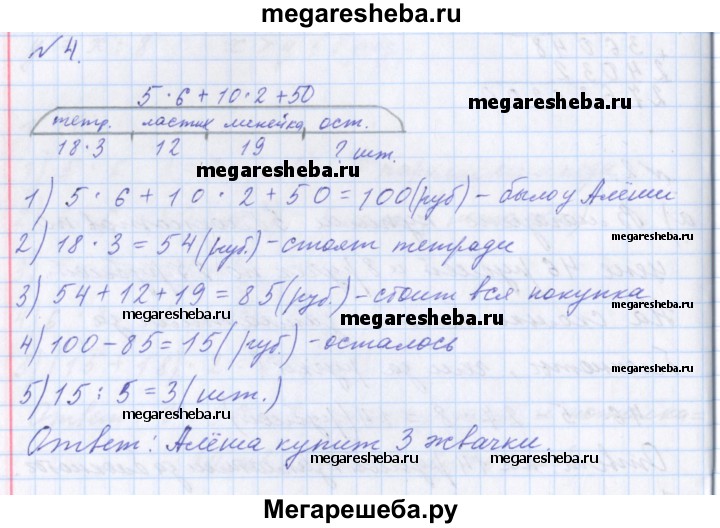 megaresheba.ru
№ 4.
5·6+10·2+50
megaresheba.ru
тетр. ластик линейка ост.
18·3 12 19 ? шт.
megaresheba.ru
1) 5·6+10·2+50=100(руб) - было у Алёши
megaresheba.ru
2) 18·3=54(руб.) - стоят тетради
megaresheba.ru
3) 54+12+19=85(руб.) - стоит вся покупка
megaresheba.ru
megaresheba.ru
4) 100-85=15(руб.) - осталось
megaresheba.ru
5) 15:5=3(шт.)
megaresheba.ru
megaresheba.ru
Ответ: Алёша купит 3 жвачки.
megaresheba.ru
megaresheba.ru
Мегарешеба.ру